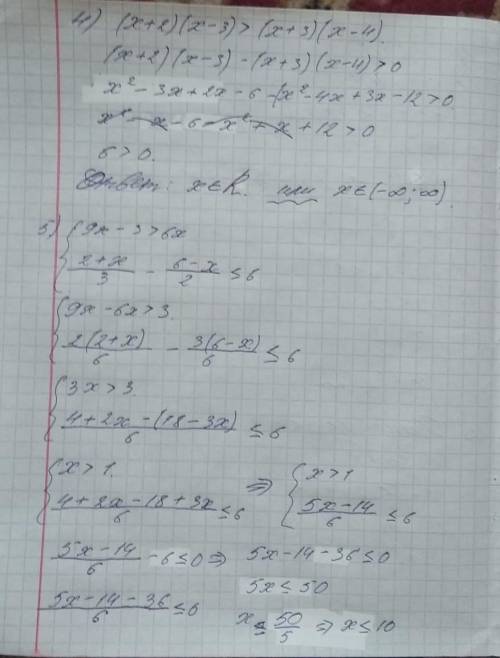 4) (x+2)(x-3)>(x+3)(x-4)
(x+2)(x-3)-(x+3)(x-4)>0
x²-3x+2x-6-(x²-4x+3x-12>0
x²-x-6-x²+x+12>0
6>0.
Ответ: x∈R. или x∈(-∞;∞).
5) {9x-3>6x
{(2+x)/3 - (6-x)/2 ≤6
{9x-6x>3.
{2(2+x)/6 - 3(6-x)/6 ≤6
{3x>3.
{(4+2x-(18-3x))/6 ≤6
{x>1. ⇒ {x>1
{(4+2x-18+3x)/6 ≤6 {(5x-14)/6 ≤6
(5x-14)/6 -6≤0 ⇒ 5x-14-36≤0
5x≤50
(5x-14-36)/6 ≤0 x≤50/5 ⇒ x≤10